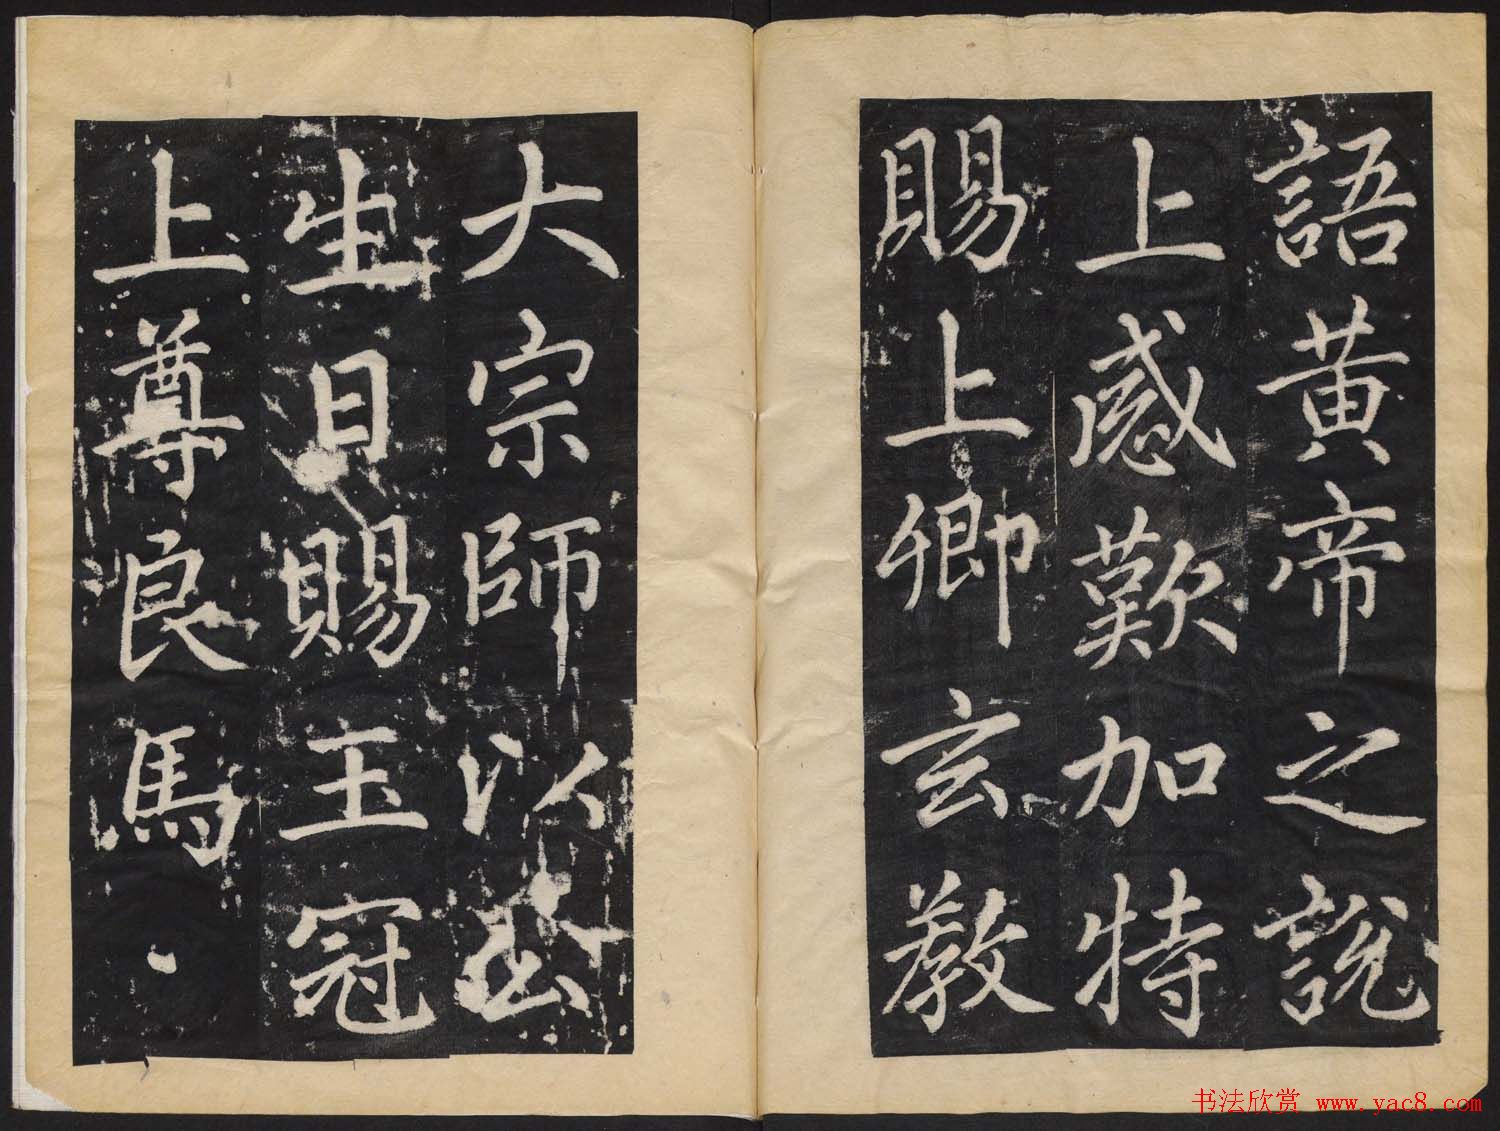 語黄帝之說
上感歎加特
賜上卿玄教
大宗師以公
生日賜玉冠
上尊良馬
书法欣赏 www.yac8.com